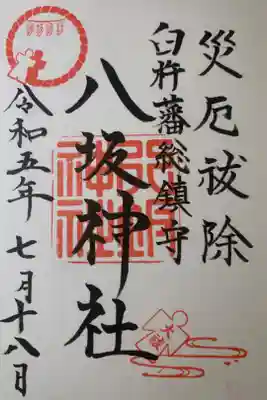 災厄祓除
臼杵藩総鎮守
八坂神社
令和五年七月十八日
大祓